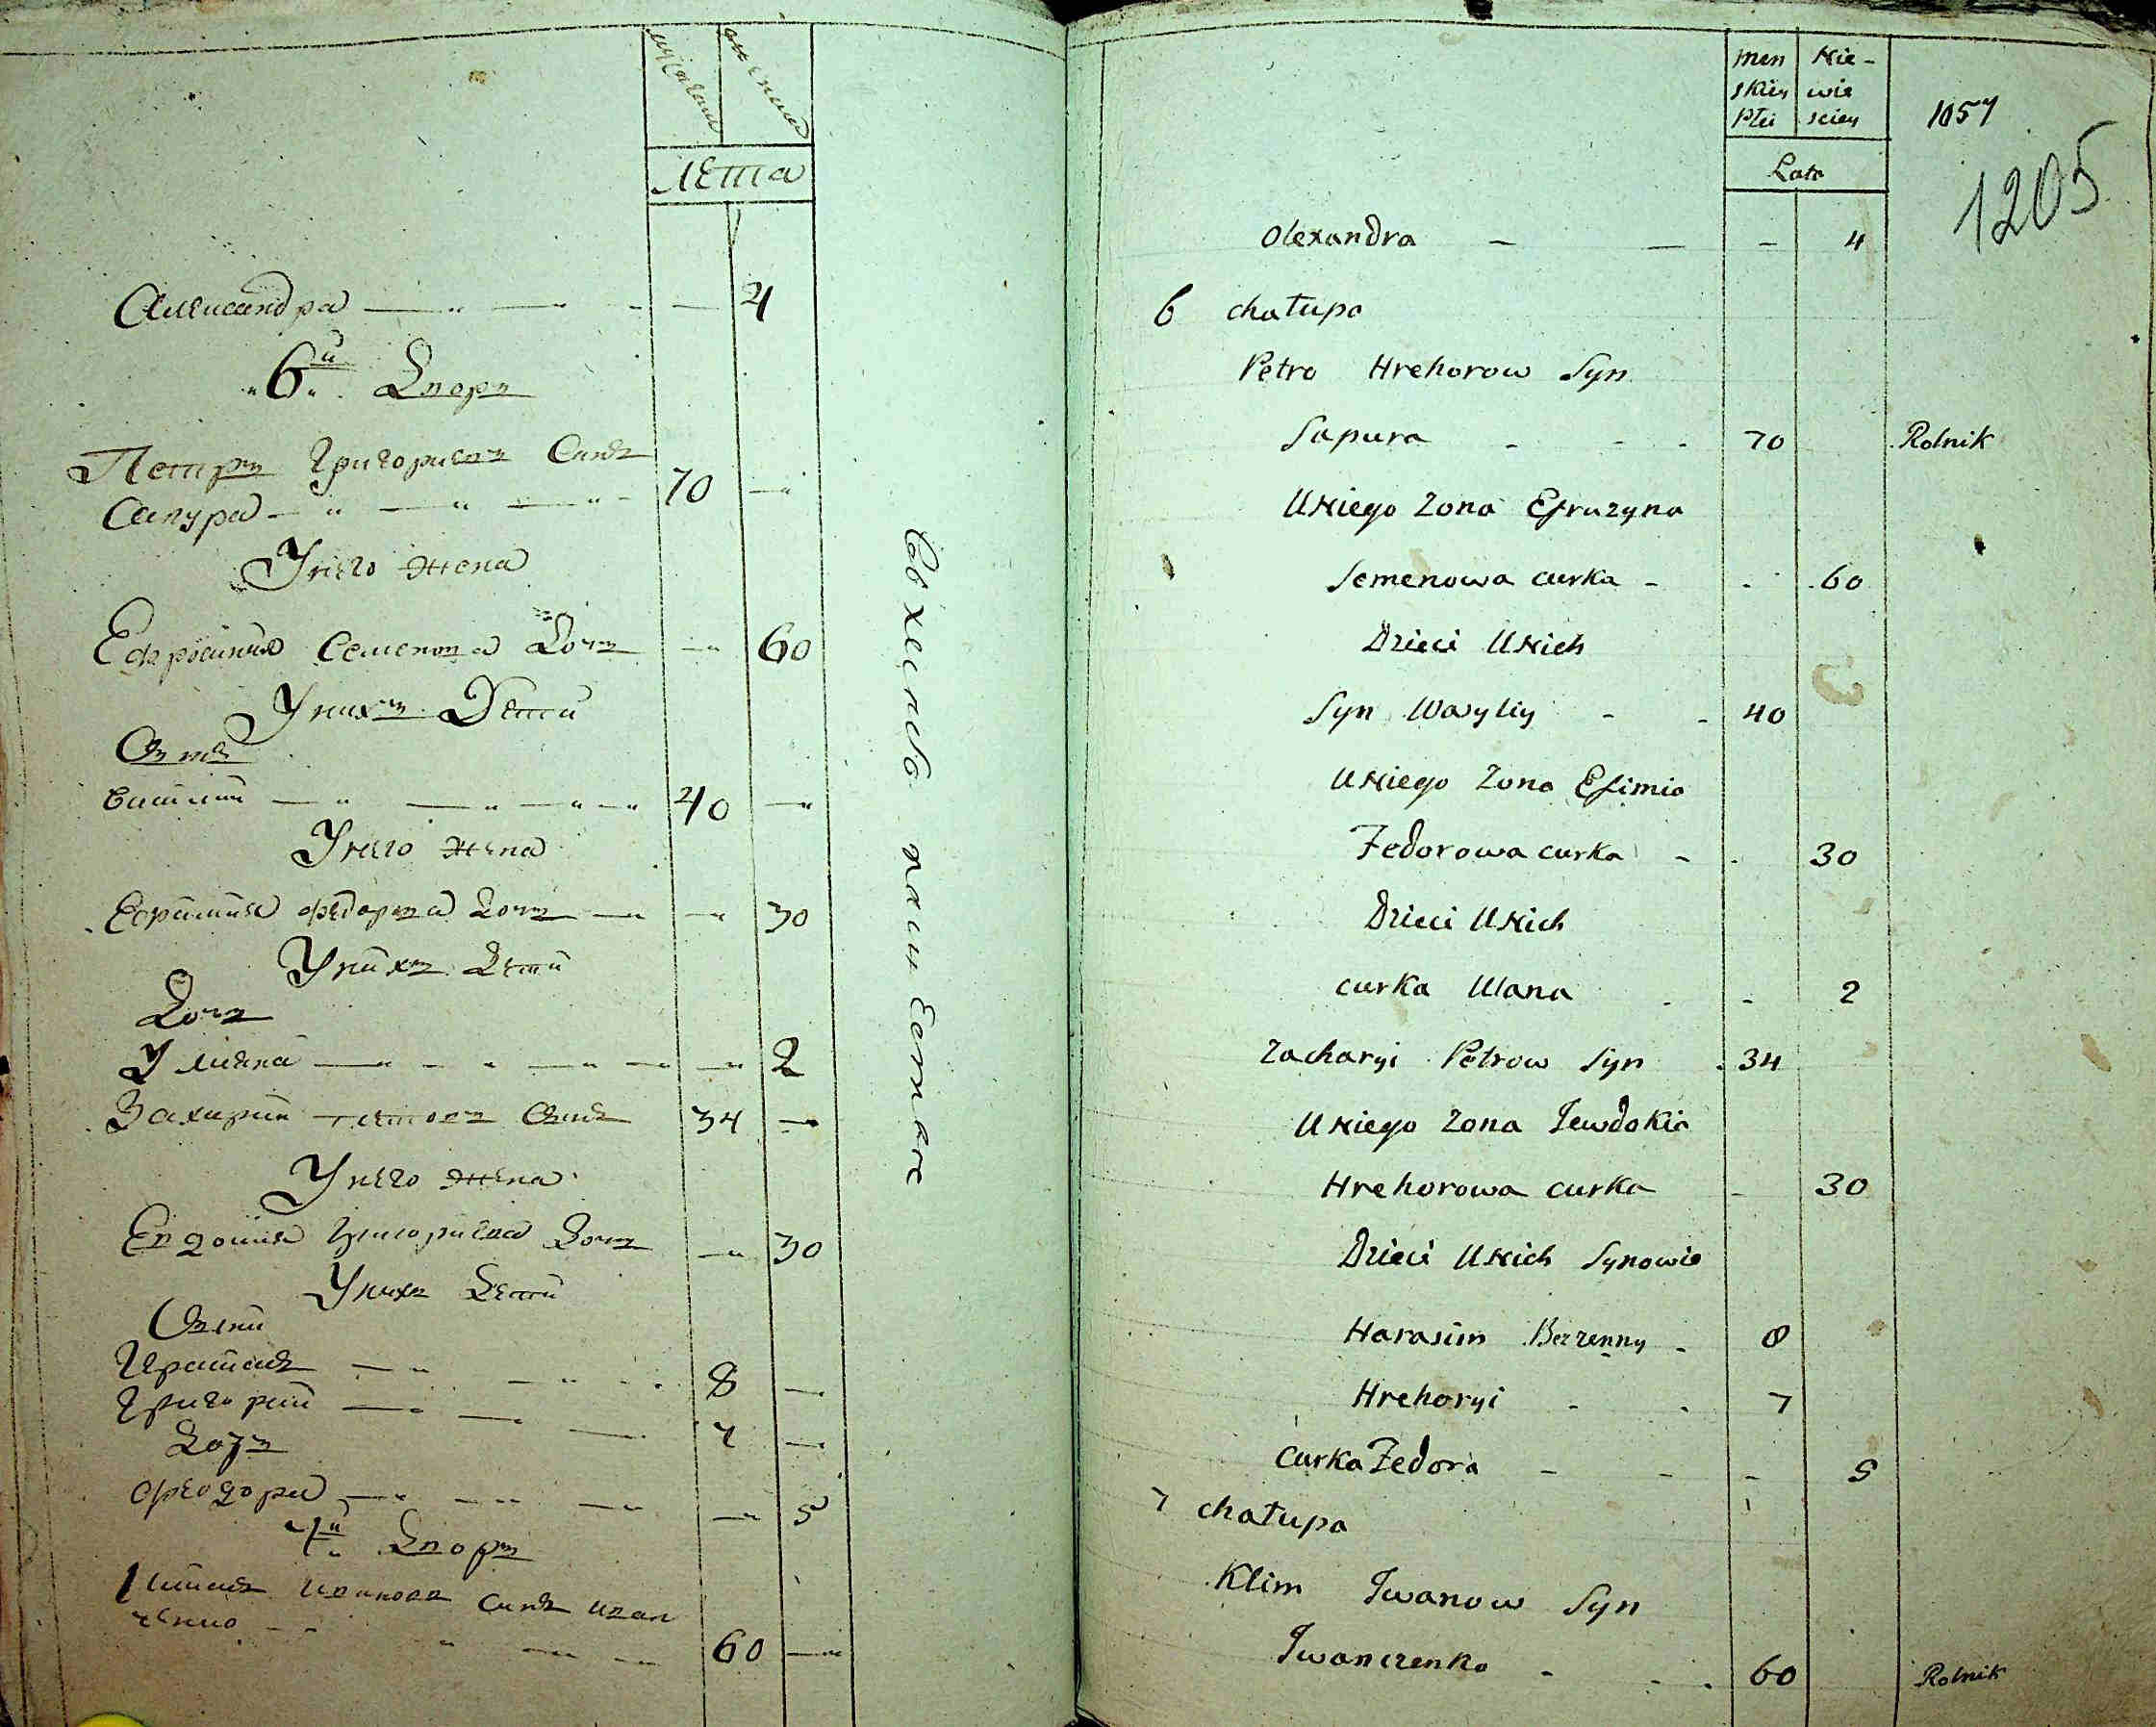 мужеска
женска
Лета
Александра — — — 4
6й Дворъ
Петръ Григорьевъ Сынъ
Сапура — — — 70 —
У него жена
Ефросиния Семенова Дочь — 60
У нихъ Дети
Сынъ
Василий — — — 40 —
У него жена
Ефимия Федорова Дочь — — 30
У нихъ Дети
Дочь
Ульяна — — — — 2
Захарий Петровъ Сынъ 34 —
У него жена
Евдокия Григорьева Дочь — 30
У нихъ Дети
Сыни
Герасимъ — — 8 —
Григорий — — 7 —
Дочь
Феодора — — — — 5
7й Дворъ
Климъ Ивановъ Сынъ Иван
ченко — — — 60 —
men Nie-
skiey wie
Płci sciey
Lata
1057
1205
Olexandra — — - 4
6 chałupa
Petro Hrehorow Syn
Sapura - - - 70 Rolnik
U Niego Zona Efruzyna
Semenowa curka - - 60
Dzieci U Nich
Syn Wasyliy - - 40
U Niego Zona Efimia
Fedorowa curka - - 30
Dzieci U Nich
curka Ulana - - 2
Zacharyi Petrow Syn - 34
U Niego Zona Jewdokia
Hrehorowa curka - 30
Dzieci U Nich Synowie
Harasim Bezzenny - 8
Hrehoryi - - 7
Curka Fedora - - - 5
7 chałupa
Klim Iwanow Syn
Iwanczenko - - - 60 Rolnik